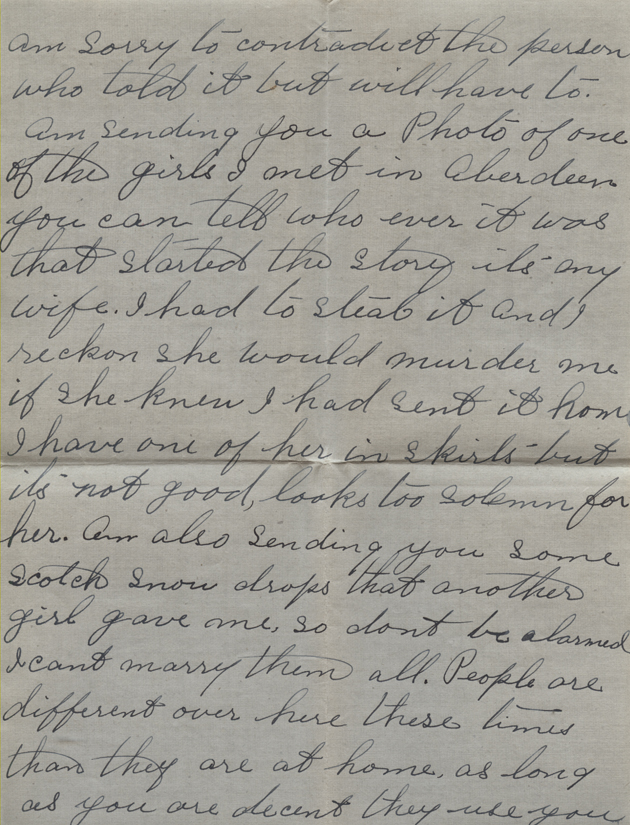 am sorry to contradict the person
who told it but will have to.
Am sending you a Photo of one
of the girls I met in Aberdeen
you can tell who ever it was
that started the story its my
wife. I had to steal it and I
reckon she would murder me
if she knew I had sent it home
I have one of her in skirts but
its not good, looks too solemn for
her. Am also sending you some
scotch snow drops that another
girl gave me, so dont be alarmed
I cant marry them all. People are
different over here these times
than they are at home, as long
as you are decent they use you